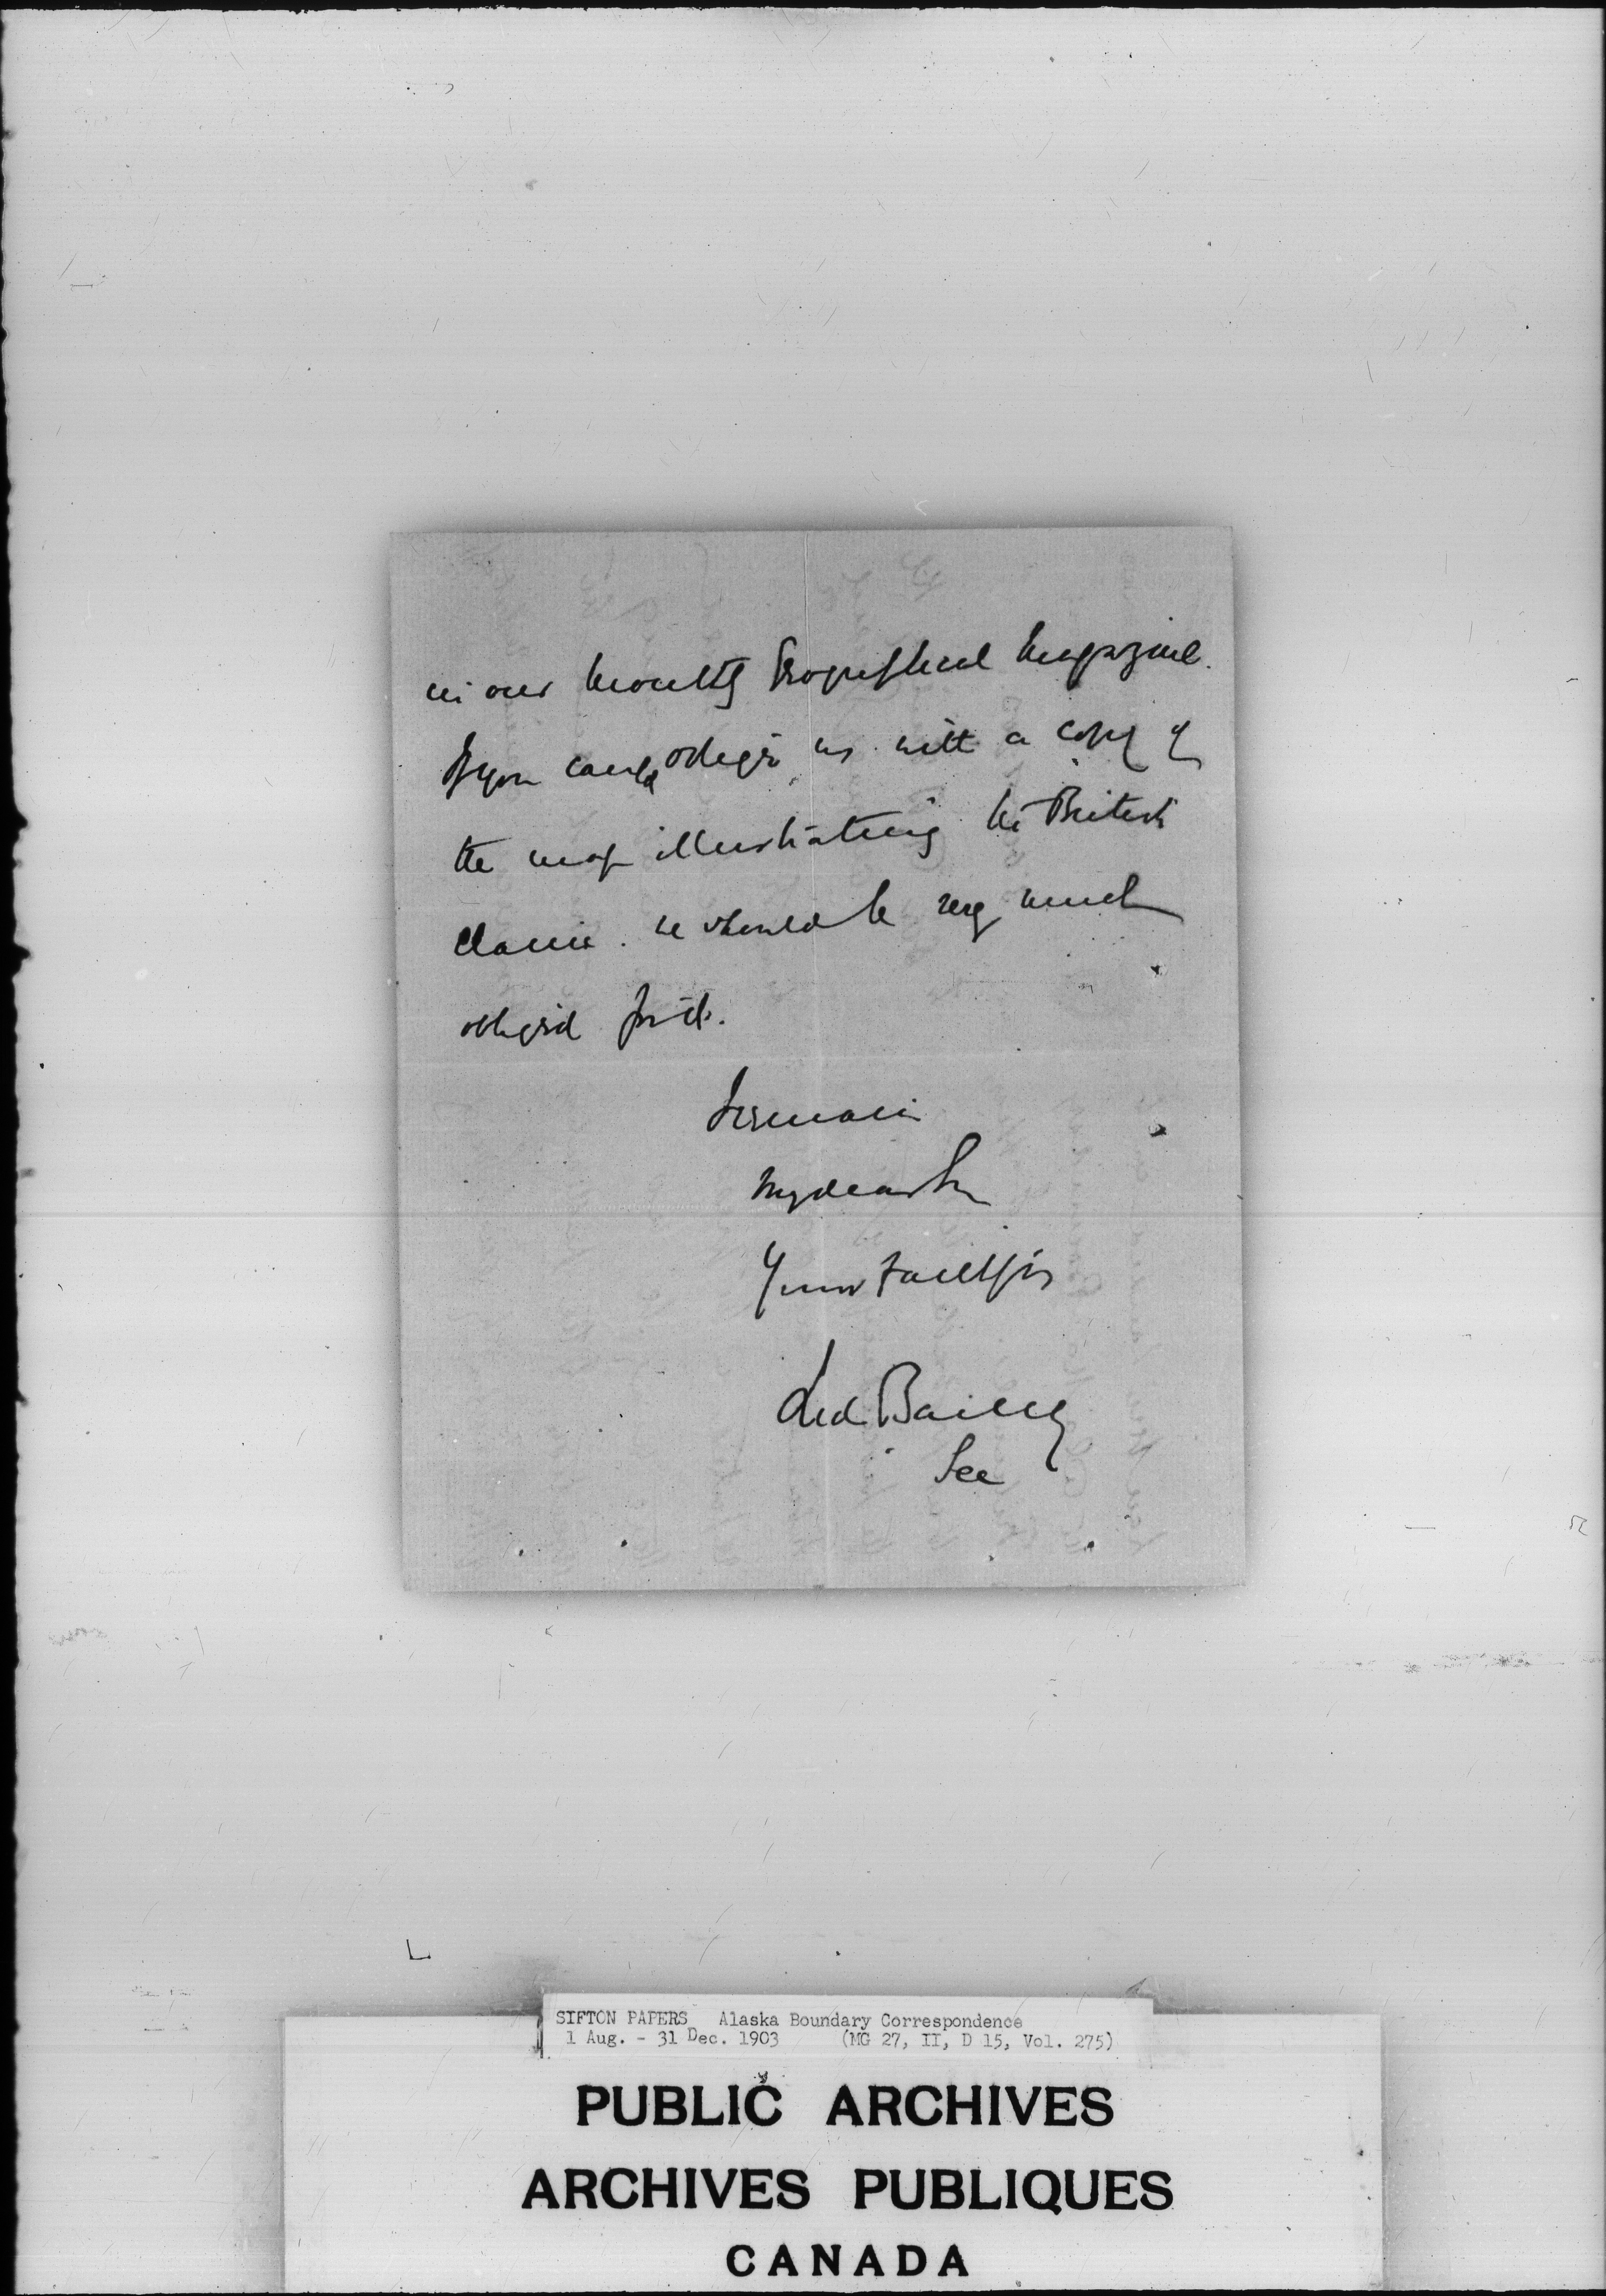 in our monthly Geographical Magazine.
If you could oblige us with a copy of
the map illustrating the British
claim. we should be very much
obliged for it.
I remain
My dear Sir
Yours Faithfully
Fred Bailey
Sec
SIFTON PAPERS Alaska Boundary Correspondence
1 Aug. - 31 Dec. 1903 (MG 27, II, D 15, Vol. 275)
PUBLIC ARCHIVES
ARCHIVES PUBLIQUES
CANADA